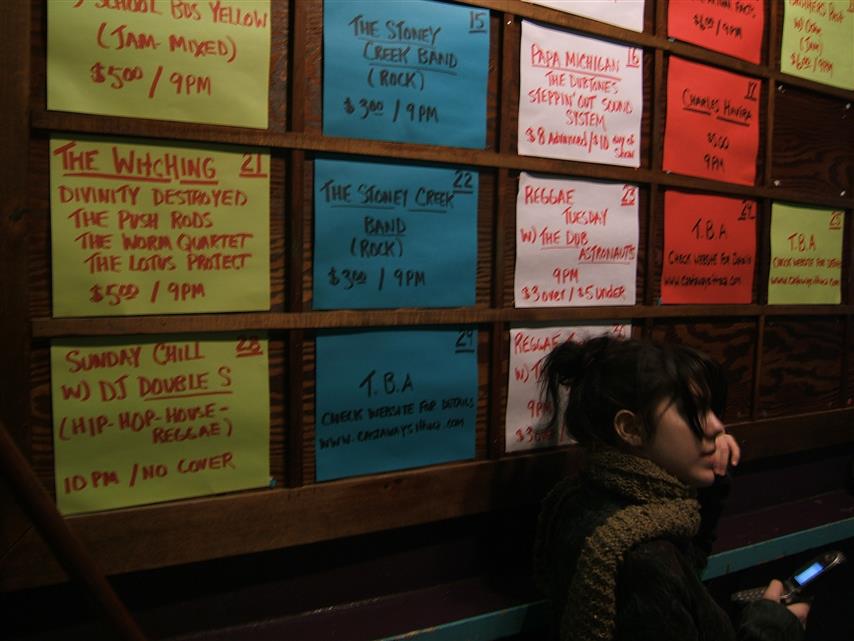 SCHOOL BUS YELLOW
(JAM-MIXED)
$5.00 / 9PM
15
THE STONEY
CREEK BAND
(ROCK)
$3.00 / 9PM
16
PAPA MICHIGAN
THE DUBTONES
STEPPIN' OUT SOUND
SYSTEM
$8 Advanced/$10 day of
show
FACTS
$6.00/9PM
17
CHARLES HAVIRA
$5.00
9PM
(JAM)
$6.00/9PM
THE WITCHING 21
DIVINITY DESTROYED
THE PUSH RODS
THE WORM QUARTET
THE LOTUS PROTECT
$5.00 / 9PM
22
THE STONEY CREEK
BAND
(ROCK)
$3.00 / 9PM
REGGAE 23
TUESDAY
W) THE DUB
ASTRONAUTS
9PM
$3 over / $5 under
24
T.B.A
CHECK WEBSITE FOR DETAILS
www.castawaysithaca.com
25
T.B.A
CHECK WEBSITE FOR DETAILS
www.castawaysithaca.com
SUNDAY CHILL 28
W) DJ DOUBLE S
(HIP-HOP-HOUSE-
REGGAE)
10PM / NO COVER
29
T.B.A
CHECK WEBSITE FOR DETAILS
www.castawaysithaca.com
REGGAE 30
W)
9PM